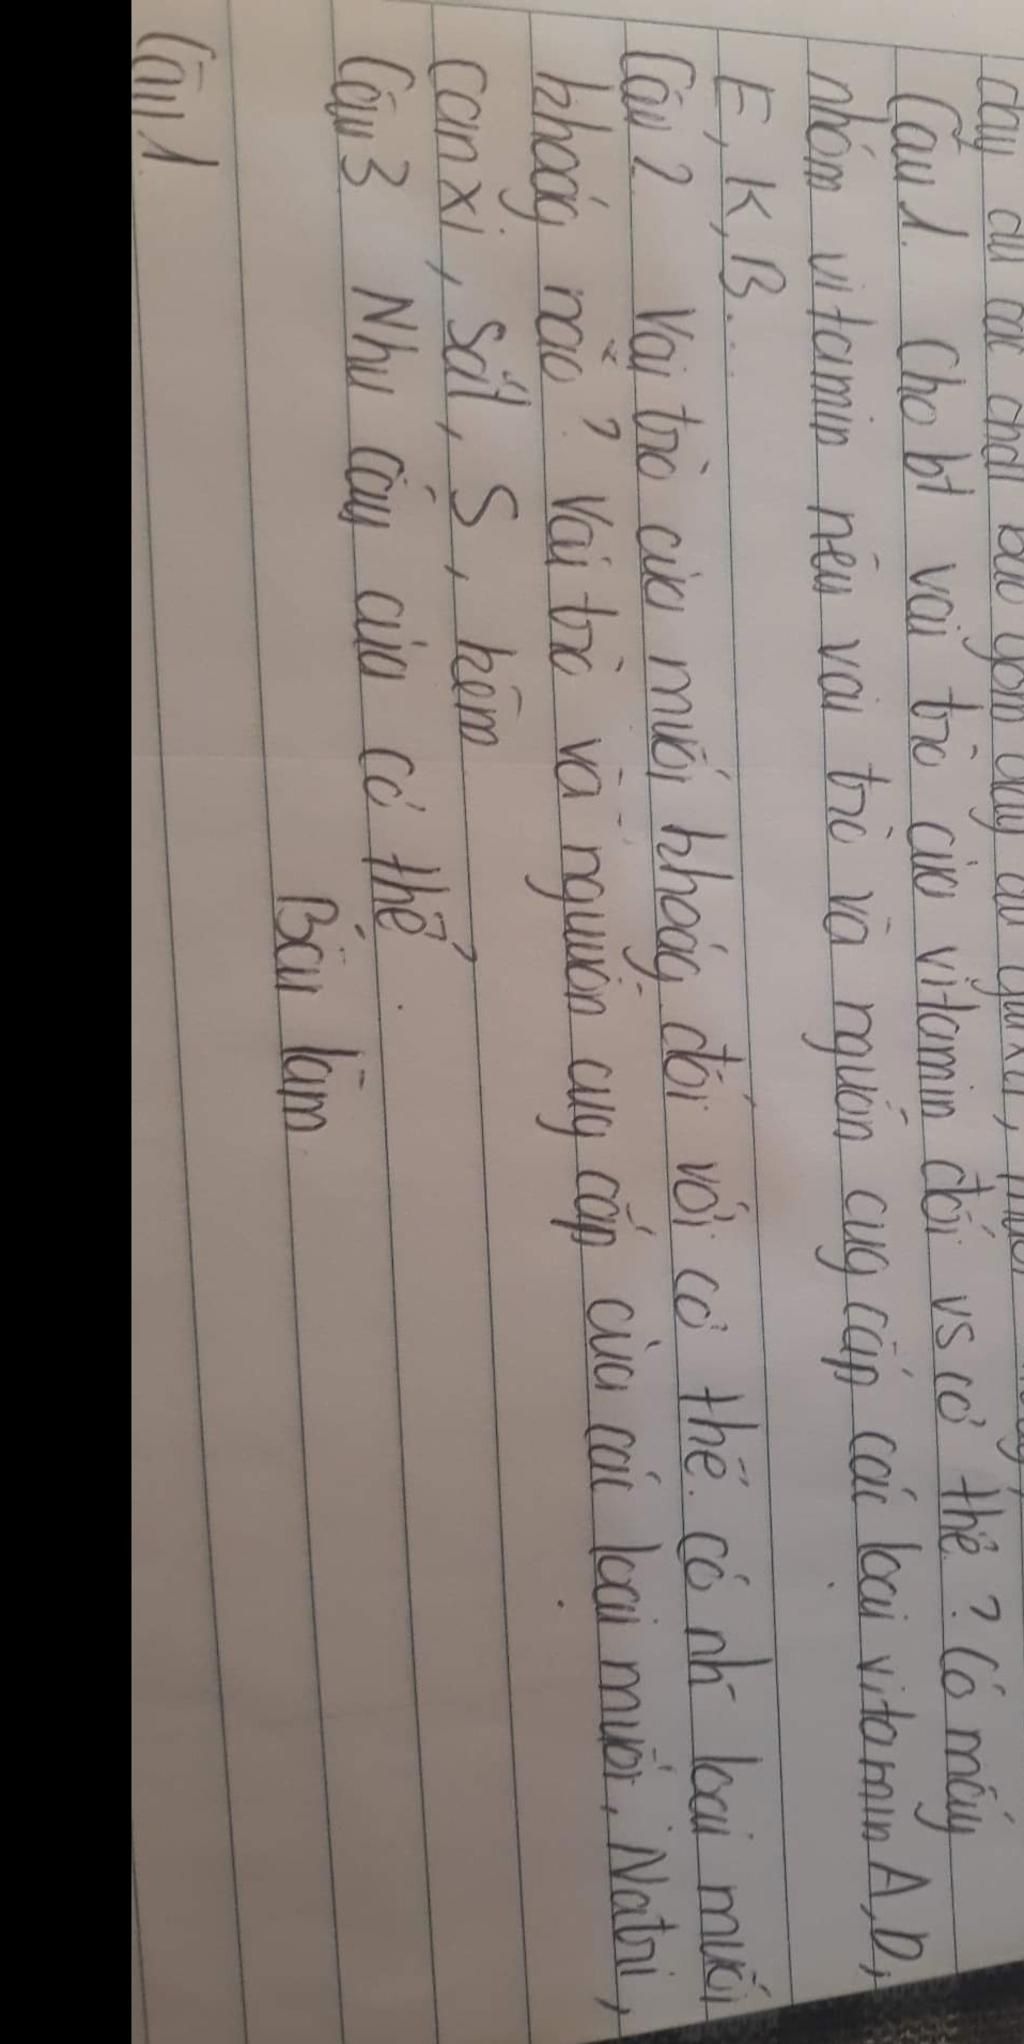 đầy đủ các chất bao gồm
Câu 1. Cho bt vai trò của vitamin đối vs cơ thể? Có mấy
nhóm vitamin nêu vai trò và nguồn cug cấp các loại vitamin A, D,
E, K, B...
Câu 2 Vai trò của muối khoág đối với cơ thể. có nh~ loại muối
khoág nào? Vai trò và nguồn cug cấp của các loại muối, Natri,
canxi, Sắt, S, kẽm
Câu 3 Nhu cầu của cơ thể.
Bài làm
Câu 1